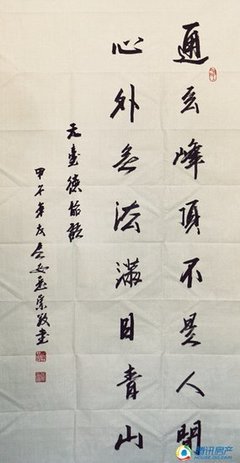 通玄峰頂不是人間
心外無法滿目青山
天臺德韶
甲午年
敬書
腾讯房产